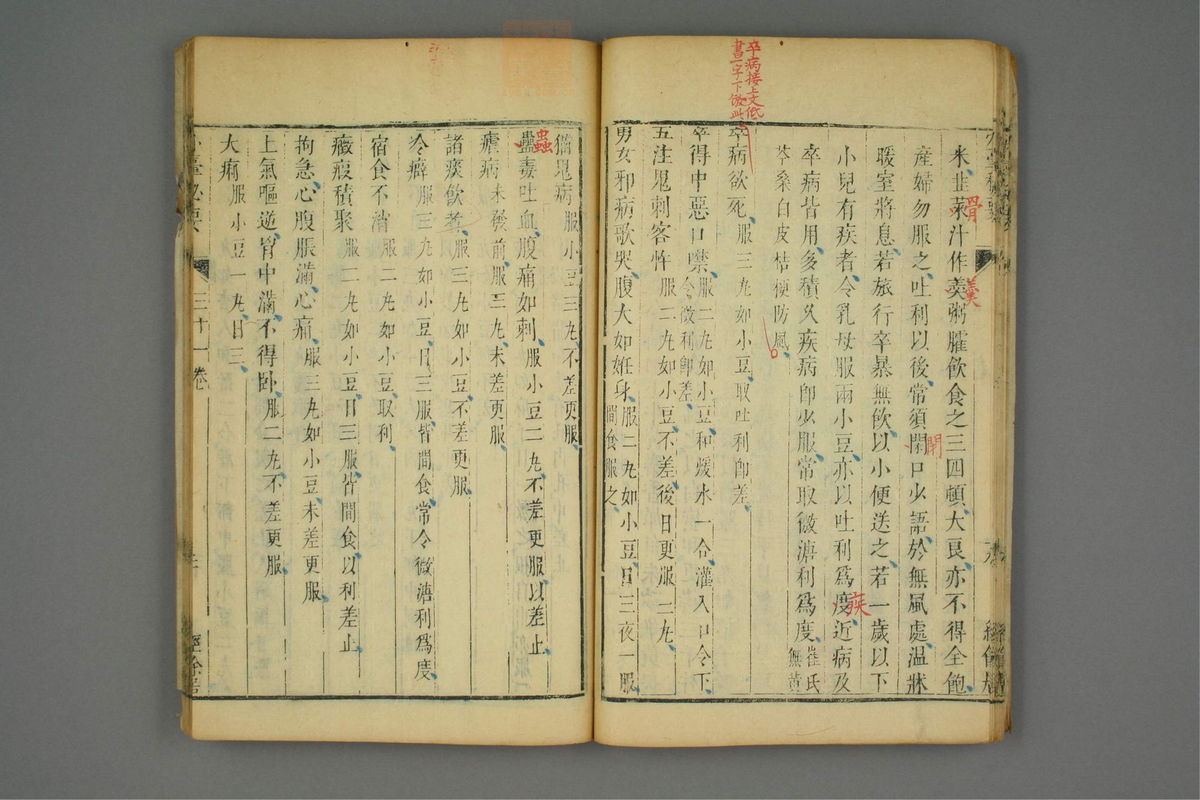 米韭菜汁作羮粥臛飲食之三四頓大良亦不得全飽
產婦勿服之吐利以後常須閑口少語於無風處温牀
暖室將息若旅行卒暴無飲以小便送之若一歲以下
小兒有疾者令乳母服兩小豆亦以吐利爲度近病及
卒病皆用多積久疾病即少服常取微溏利爲度崔氏無黄
芩桑白皮桔梗防風
卒病欲死服三丸如小豆取吐利即差
卒得中惡口噤服二丸如小豆和煖水一合灌入口令下
令微利即差
五注鬼刺客忤服二丸如小豆不差後日更服三丸
男女邪病歌哭腹大如妊身服二丸如小豆日三夜一服
間食服之
骨
羮
閉
疾
卒病接上文低
書一字下倣此
猫鬼病服小豆三丸不差更服
蠱毒吐血腹痛如刺服小豆二丸不差更服以差止
蟲
瘧病未發前服三丸未差更服
諸痰飲者服三丸如小豆不差更服
冷癖服三丸如小豆日三服皆間食常令微溏利爲度
宿食不消服二丸如小豆取利
癥瘕積聚服二丸如小豆日三服皆間食以利差止
拘急心腹脹滿心痛服三丸如小豆未差更服
上氣嘔逆胷中滿不得卧服二丸不差更服
大痢服小豆一丸日三
三十一卷